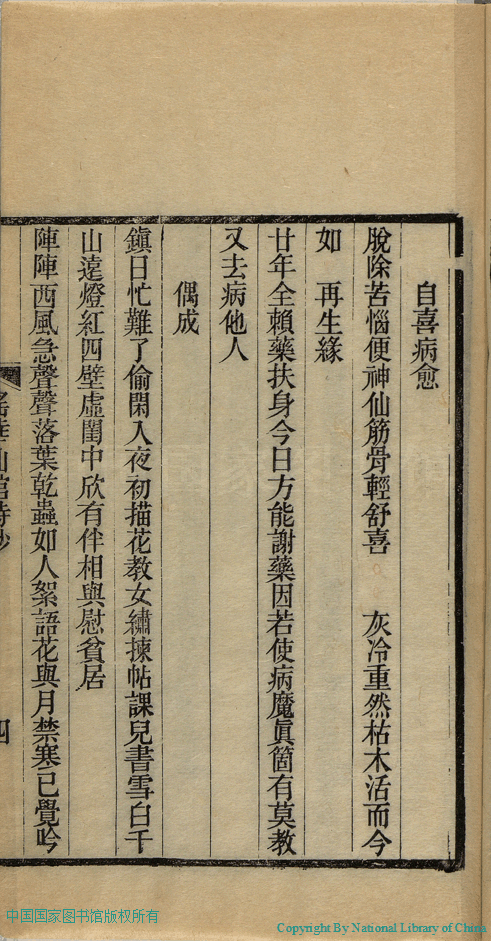 自喜病愈
脫除苦惱便神仙筋骨輕舒喜　　灰冷重然枯木活而今
如　再生緣
廿年全賴藥扶身今日方能謝藥因若使病魔眞箇有莫教
又去病他人
偶成
鎭日忙難了偷閑入夜初描花教女繡揀帖課兒書雪白千
山遠燈紅四壁虛閨中欣有伴相與慰貧居
陣陣西風急聲聲落葉乾蟲如人絮語花與月禁寒已覺吟
四
中国国家图书馆版权所有
Copyright By National Library of China